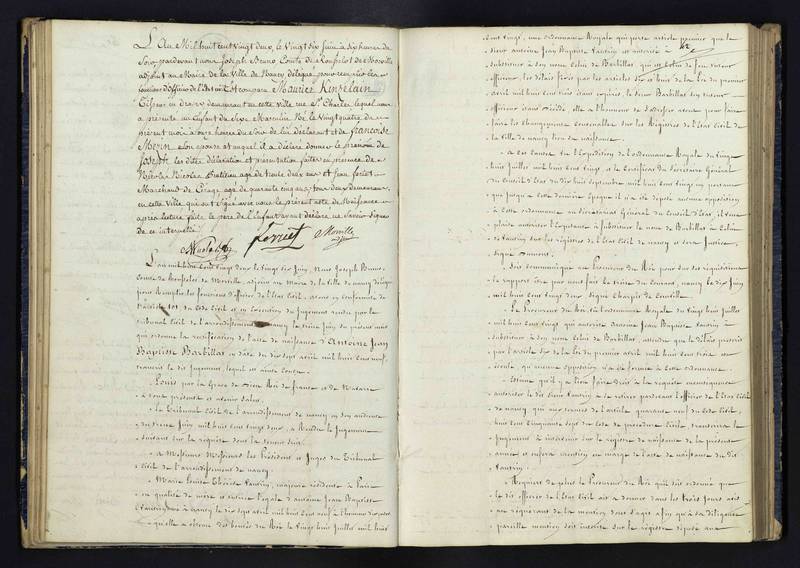 L'An Mil huit cent vingt deux, le vingt six Juin à six heures du
Soir pardevant nous Joseph Bruno Comte de
adjoint au Maire de la Ville de Nancy délégué pour remplir les
fonctions d'officier de l'état civil est comparu Maurice Kinzelain
demeurant en cette ville rue St Charles lequel nous
a présenté un Enfant du Sexe Masculin Né le Vingt quatre du
présent mois à onze heures du Soir de lui déclarant et de francoise
son épouse et auquel il a déclaré donner le prénom de
Joseph les dites déclaration et présentation faites en présence de
Nicolas agé de trente deux ans et Jean
Marchand de agé de quarante cinq ans, tous deux demeurant
en cette Ville qui ont signé avec nous le présent acte de Naissance
après lecture faite le père de l'Enfant ayant déclaré ne Savoir Signer
de ce interpellé
L'an mil huit Cent vingt deux le vingt six Juin, Nous Joseph Bruno
Comte de adjoint au Maire de la ville de nancy délégué
pour Remplir les fonctions d'officier de l'état Civil, et en conformité de
l'article 101 du Code Civil et en Exécution du Jugement rendu par le
tribunal Civil de l'arrondissement de nancy le treize Juin du présent mois
qui ordonne la rectification de l'acte de naissance d'Antoine Jean
Baptiste Barbillat en date du dix sept avril mil huit Cent neuf
transcrit le dit Jugement lequel est ainsi Conçu.
Louis par la Grace de Dieu Roi de france et de Navarre
à tous présents et avenir Salut.
Le Tribunal Civil de l'arrondissement de nancy en son audience
du treize Juin mil huit Cent vingt deux, a Rendu le Jugement
suivant sur la requête dont la teneur suit.
A Messieurs Messieurs les Président et Juges du Tribunal
Civil de l'arrondissement de nancy.
Marie Louise Thérèse Vautrin, majeure résidente à Paris
en qualité de mère et tutrice légale d'antoine Jean Baptiste
Vautrin né à nancy le dix sept avril mil huit Cent neuf
qu'elle a obtenu des bontés du Roi le vingt huit Juillet mil huit
Cent vingt, une ordonnance Royale qui porte article premier que le
sieur antoine Jean Baptiste Vautrin est autorisé à
substituer à son nom Celui de Barbillat qui est Celui de feu
les délais fixés par les articles six et huit de la loi du premier
avril mil huit Cent trois étant expirés, le sieur Barbillat
elle a l'honneur de s'adresser à vous pour faire
faire les changements Convenables sur les Registres de l'Etat Civil de
la Ville de nancy lieu de naissance.
A ces Causes vu l'Expédition de l'ordonnance Royale du vingt
huit Juillet mil huit Cent vingt, et le Certificat du Secrétaire Général
du Conseil d'Etat du dix huit Septembre mil huit Cent vingt un portant
que Jusqu'à cette dernière Epoque il n'a été déposé aucune opposition
à cette ordonnance au Secrétariat Général du Conseil d'Etat, il vous
plaise autoriser l'Exposante à substituer le nom de Barbillat à Celui
de Vautrin sur les registres de l'Etat Civil de nancy et sera Justice.
Signé
Soit communiqué au Procureur du Roi pour sur ses réquisitions
le rapport être par nous fait la Chambre du Conseil, nancy le dix Juin
mil huit Cent vingt deux signé
Le Procureur du Roi vu l'ordonnance Royale du vingt huit Juillet
mil huit Cent vingt qui autorise Antoine Jean Baptiste Vautrin à
substituer à son nom Celui de Barbillat, attendu que le délai prescrit
par l'article six de la loi du premier avril mil huit Cent trois est
écoulé qu'aucune opposition n'a été formée à Cette ordonnance.
Estime qu'il y a lieu faire droit à la requête en conséquence
autoriser le dit Sieur Vautrin à se retirer pardevant l'officier de l'Etat Civil
de nancy, qui aux termes de l'article quarante neuf du Code Civil
huit Cent Cinquante Sept du Code de procédure Civile, transcrira le
Jugement à intervenir sur le registre de naissance de la présente
année et en fera mention en marge de l'acte de naissance du dit
Vautrin.
Requiert de plus le Procureur du Roi qu'il soit ordonné que
le dit officier de l'Etat Civil ait à donner dans les trois Jours avis
au requérant de la mention dont s'agit afin qu'à sa diligence
pareille mention soit inscrite sur le registre déposé au